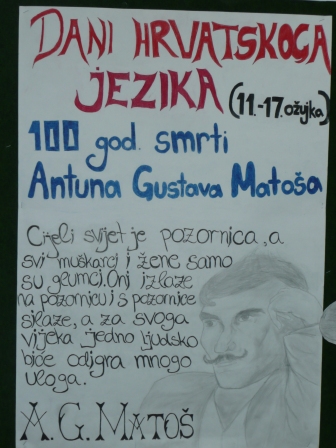 DANI HRVATSKOGA
JEZIKA (11.-17.ožujka)
100 god. smrti
Antuna Gustava Matoša
Cijeli svijet je pozornica, a
svi muškarci i žene samo
su glumci. Oni izlaze
na pozornicu i s pozornice
silaze, a za svoga
vijeka jedno ljudsko
biće odigra mnogo
uloga.
A. G. MATOŠ